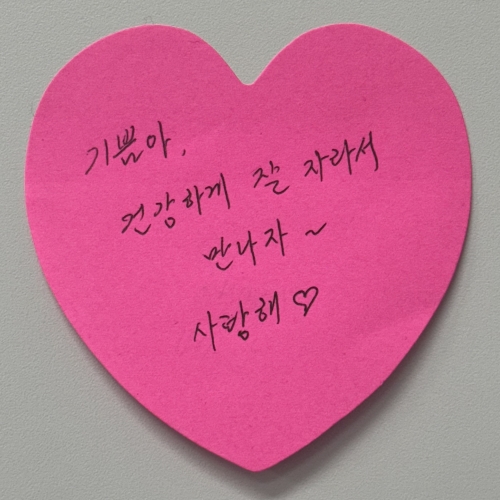 기쁨아,
건강하게 잘 자라서
만나자~
사랑해♡